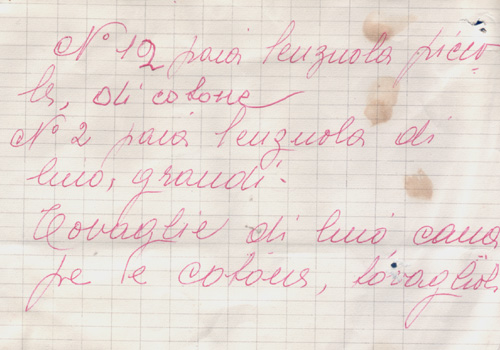 N° 12 paia lenzuola picco-
le, di cotone
N° 2 paia lenzuola di
lino, grandi-
Tovaglie di lino cana
pe e cotone, tovaglioli